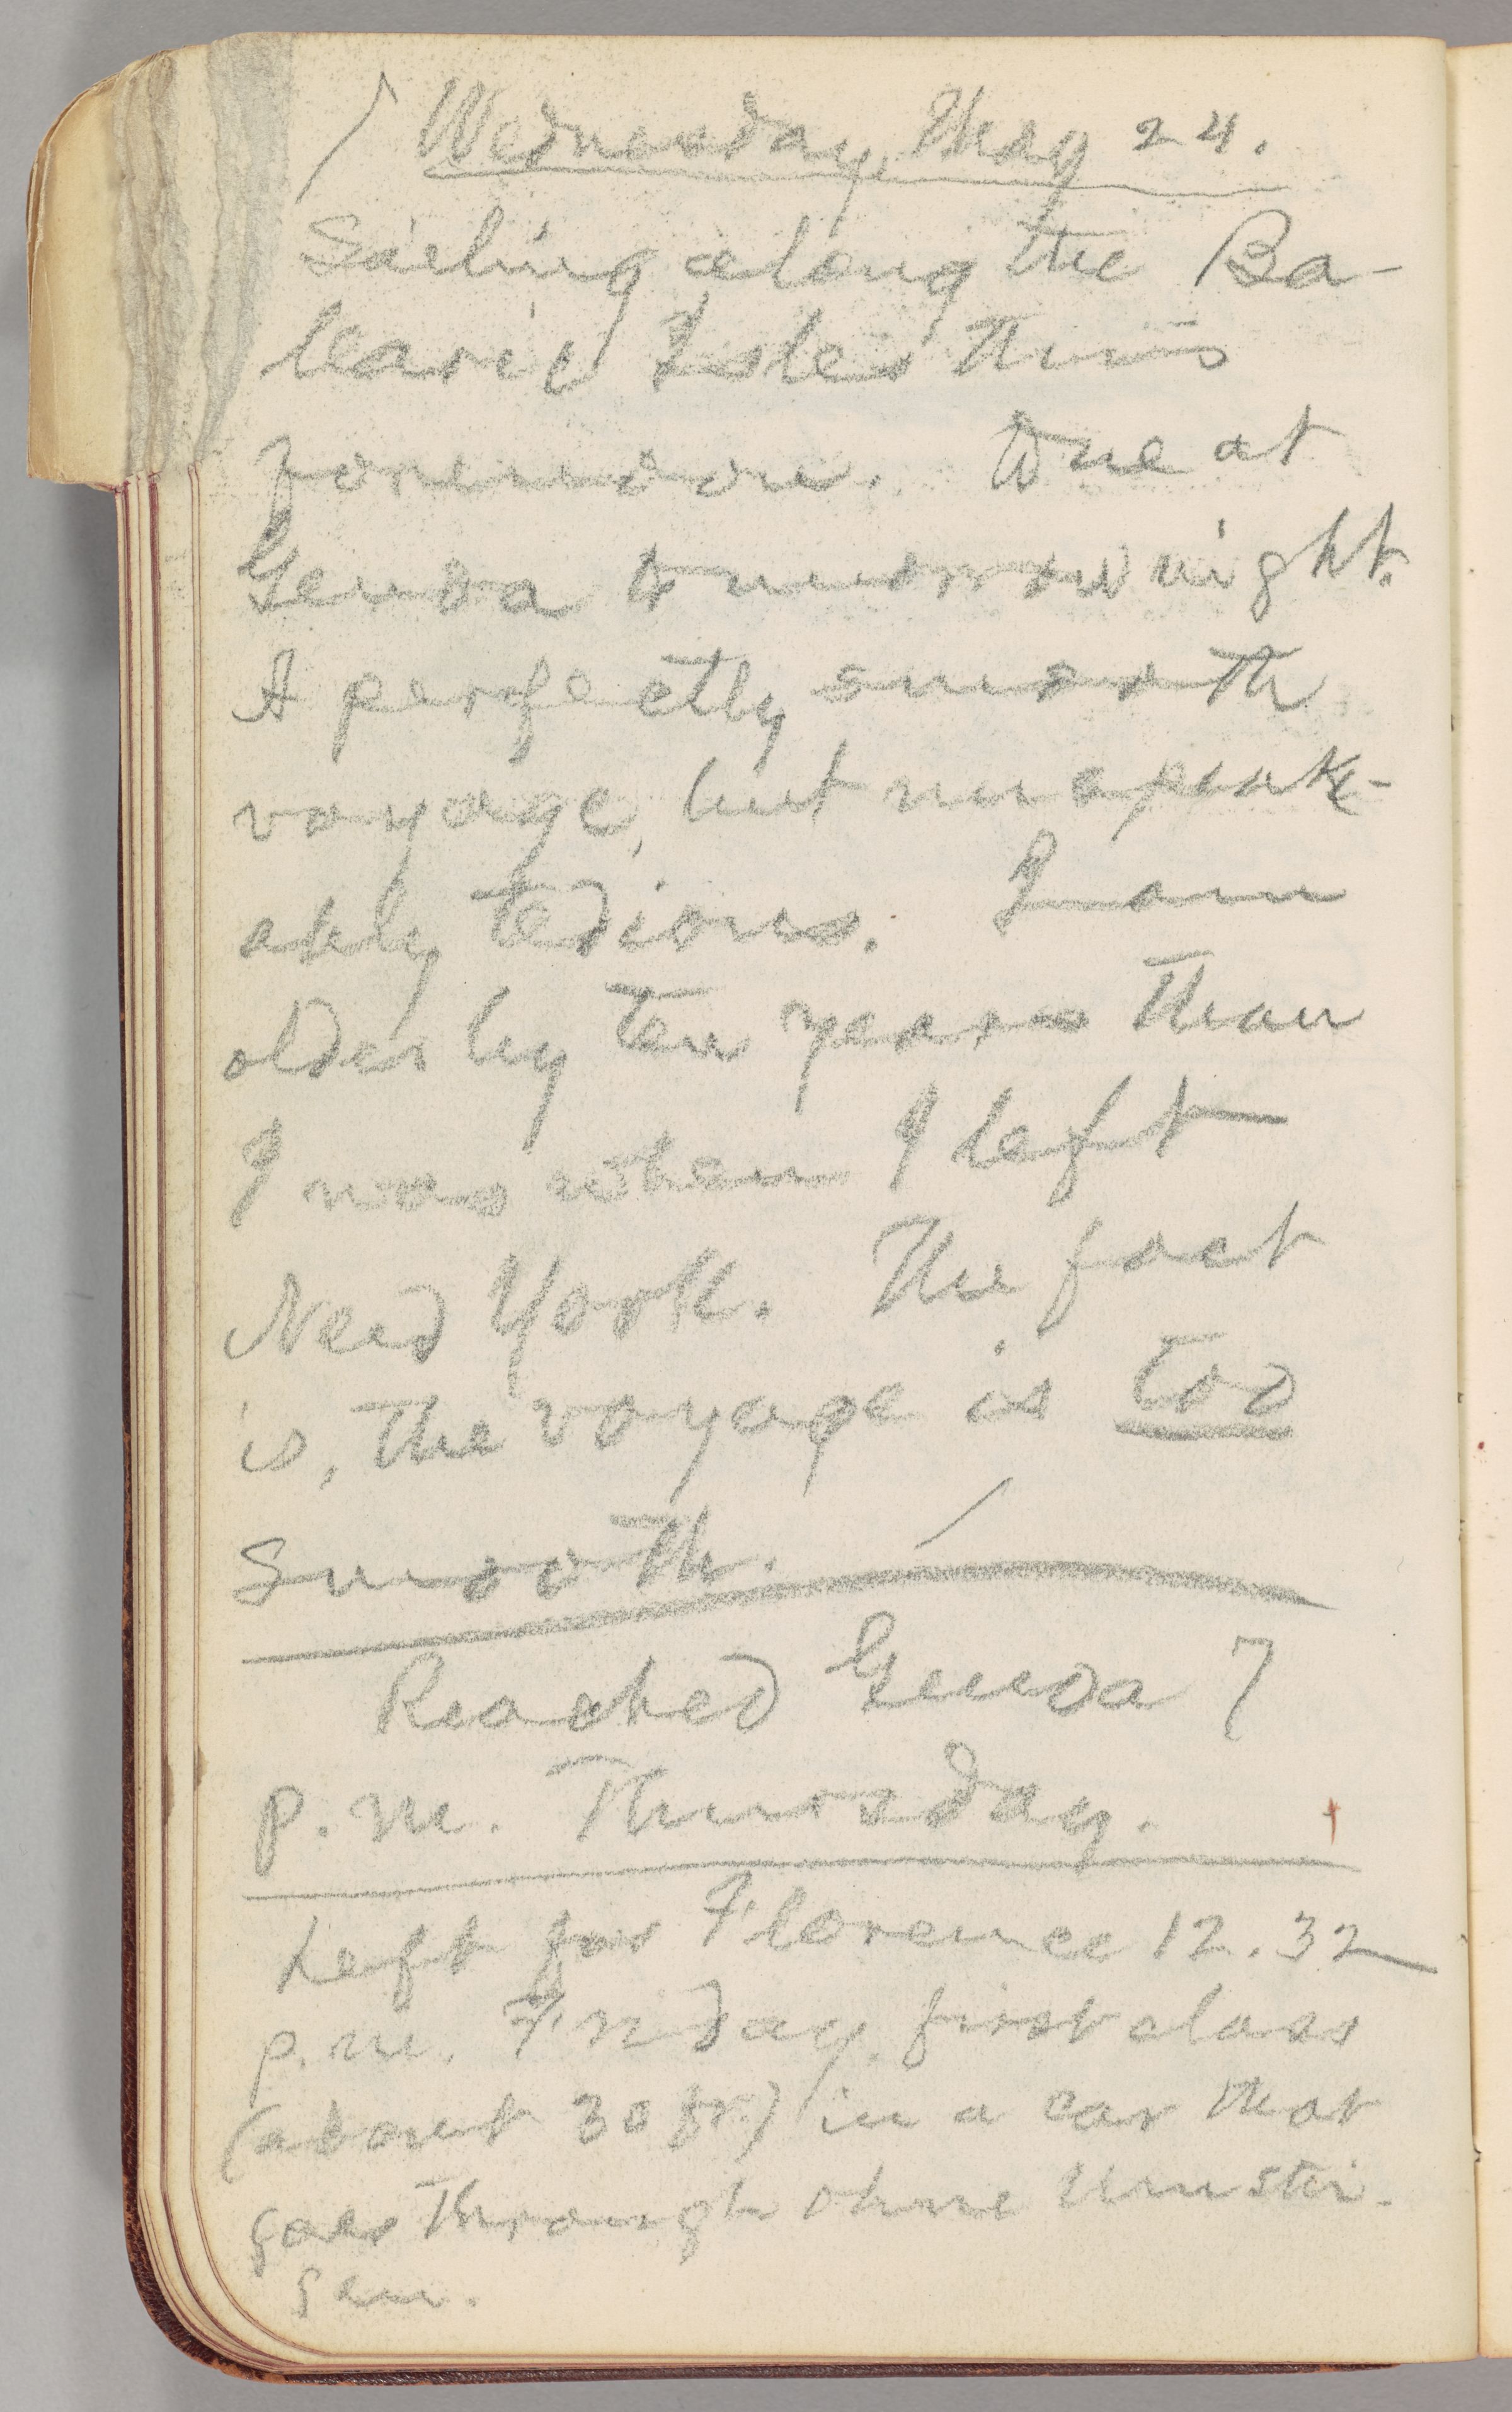 Wednesday, May 24.
Sailing along the Ba-
learic Isles this
forenoon. Due at
Genoa tomorrow night.
A perfectly smooth
voyage, but unspeak-
ably tedious. I am
older by ten years than
I was when I left
New York. The fact
is, the voyage is too
smooth.
Reached Genoa 7
p.m. Thursday.
Left for Florence 12.32
p.m. Friday, first class
(about 30 fr.) in a car that
goes through ohne Umstei-
gen.